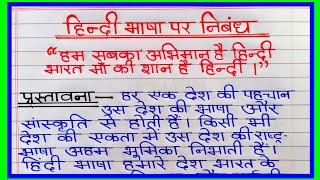 हिन्दी भाषा पर निबंध
“हम सबका अभिमान है हिन्दी
भारत माँ की शान है हिन्दी।”
प्रस्तावना— हर एक देश की पहचान
उस देश की भाषा और
सांस्कृति से होती हैं। किसी भी
देश की एकता में उस देश की राष्ट्र-
भाषा अहम भूमिका निभाती हैं।
हिंदी भाषा हमारे देश भारत के